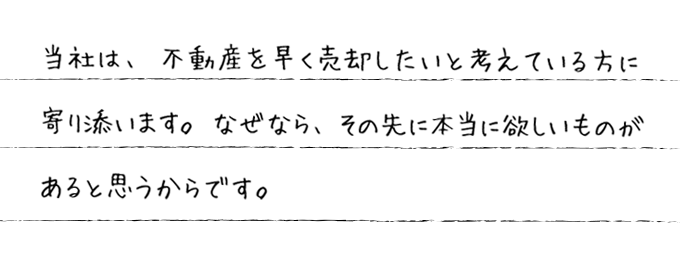 当社は、不動産を早く売却したいと考えている方に
寄り添います。なぜなら、その先に本当に欲しいものが
あると思うからです。